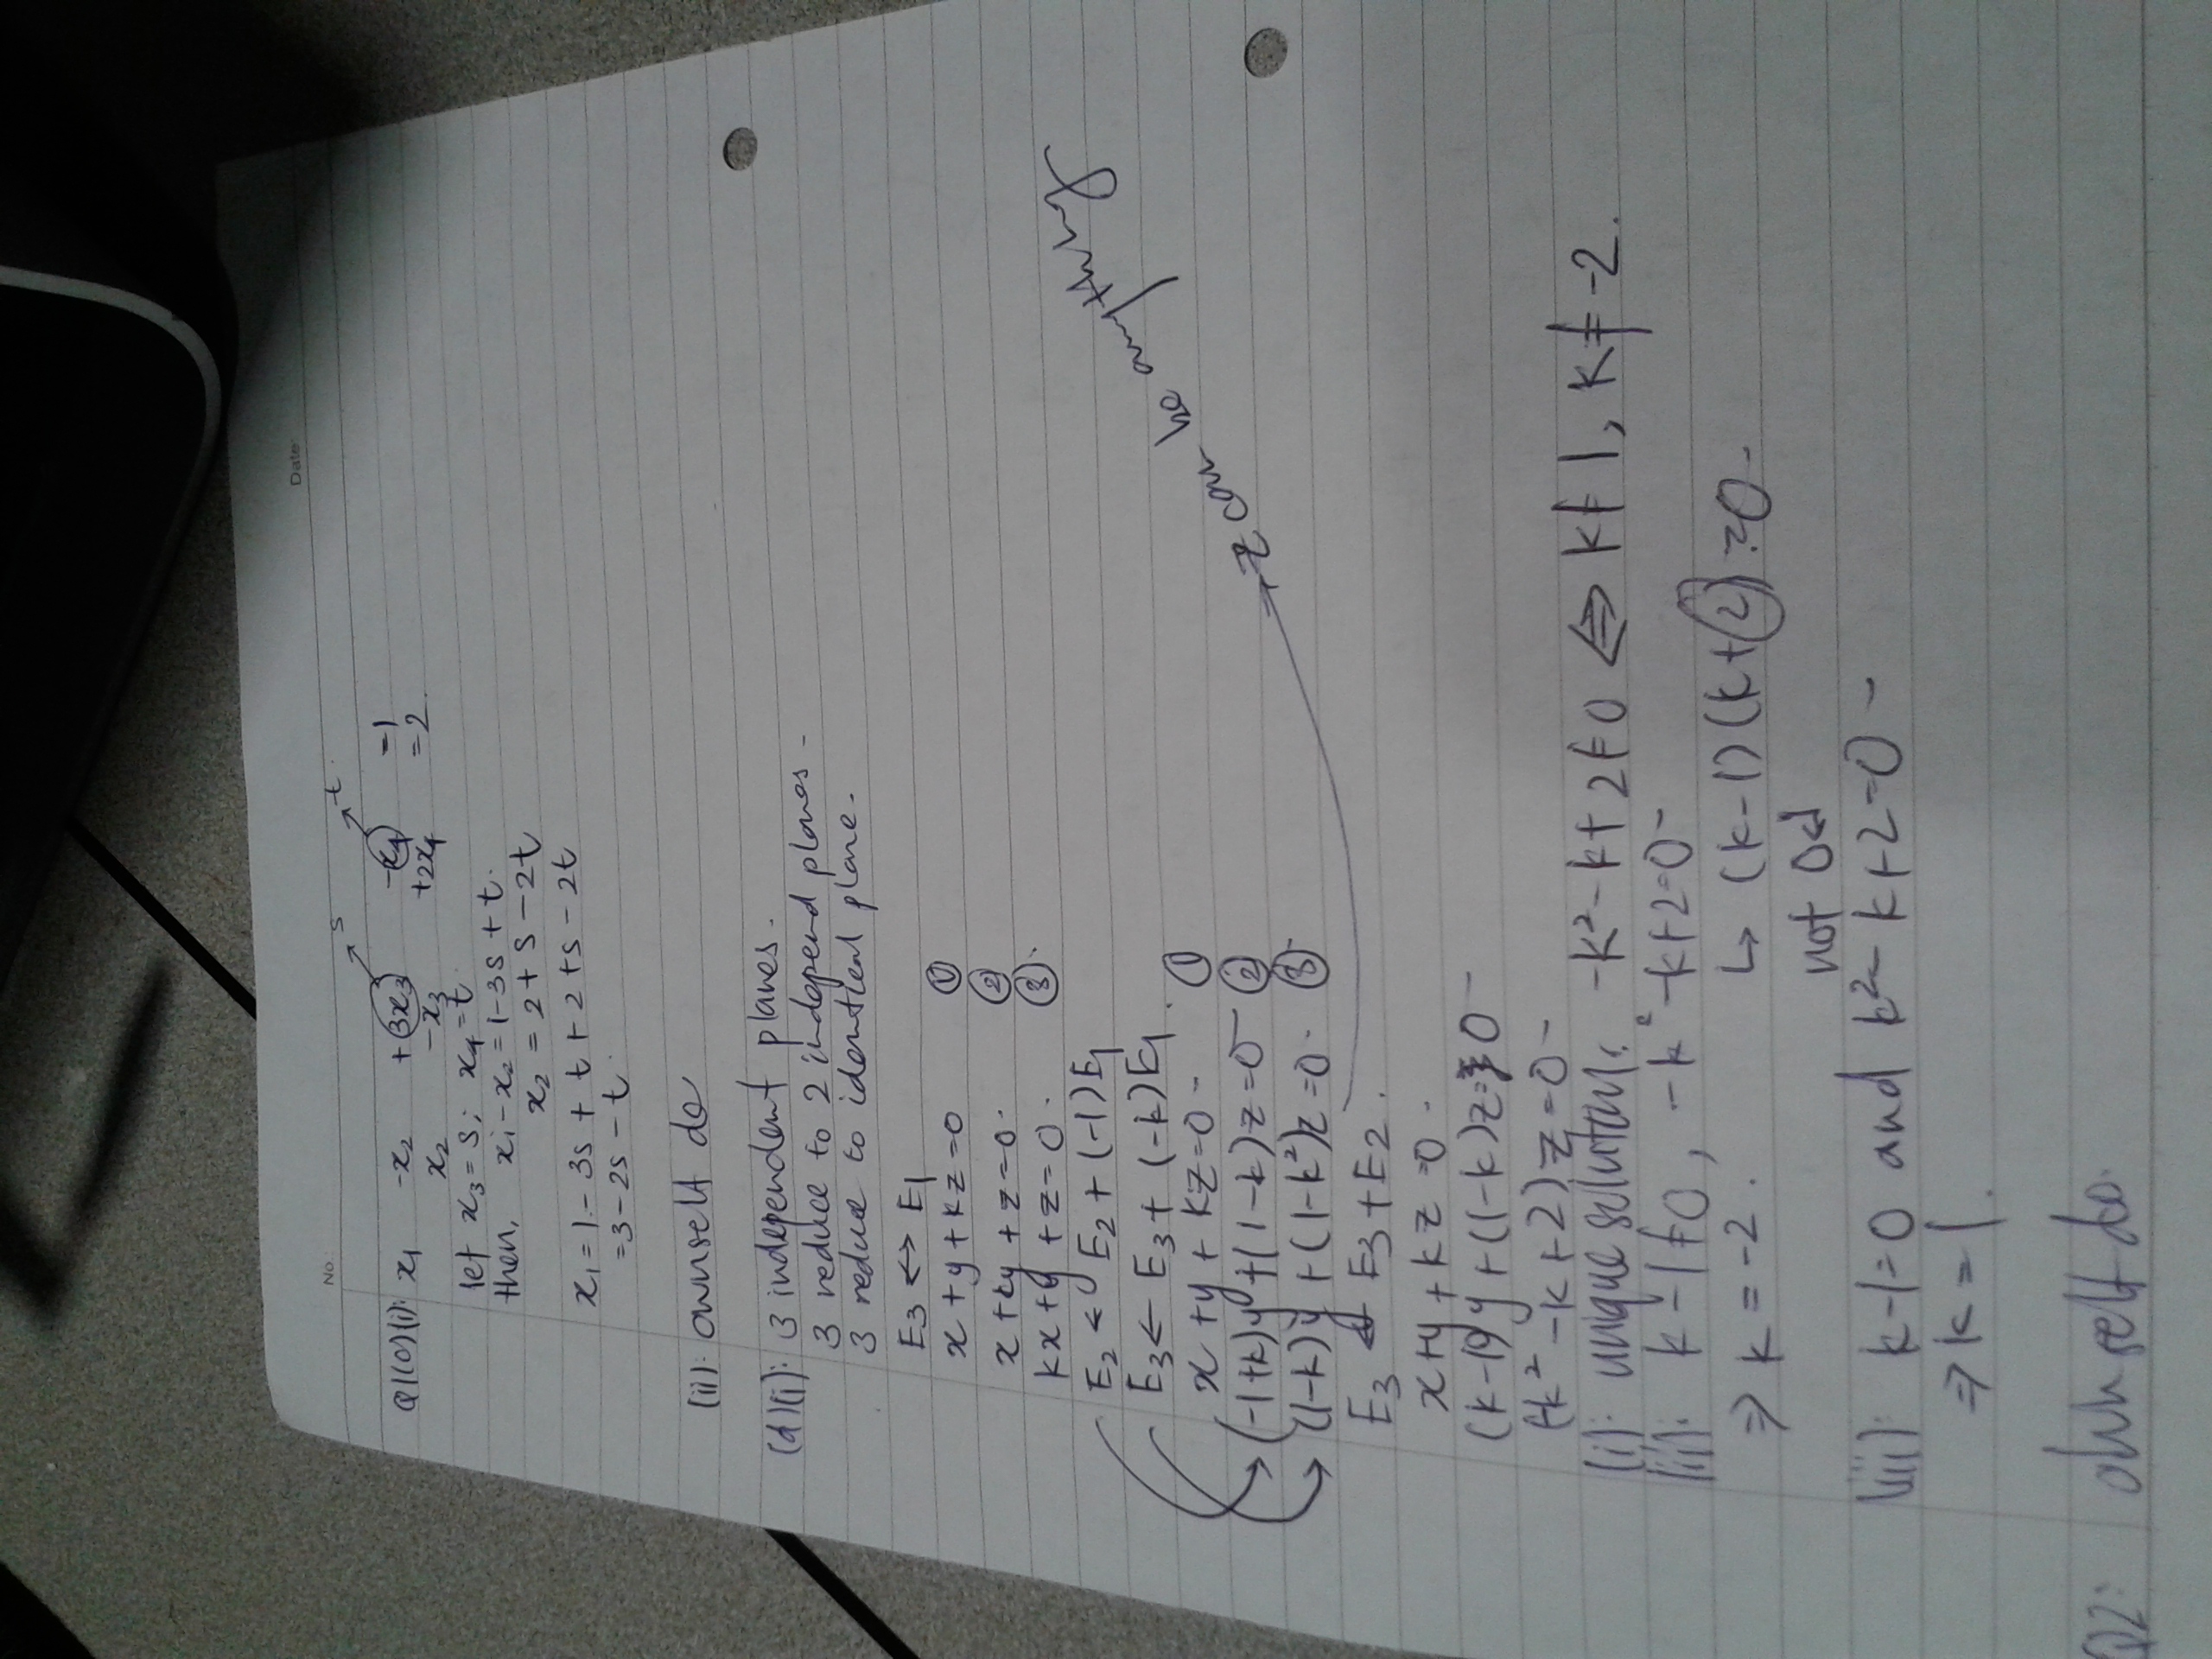 No.:
Date:
s t
Q1(c)(i): x₁ -x₂ +3x₃ -x₄ =1
x₂ -x₃ +2x₄ =2.
let x₃=s; x₄=t.
then, x₁-x₂=1-3s+t.
x₂ = 2+s-2t
x₁=1-3s+t+2+s-2t
=3-2s-t.
(ii): ownself do
(d)(i): 3 independent planes.
3 reduce to 2 independ planes-
3 reduce to identical plane.
E3 ↔ E1
x+y+kz=0 ①
x+ky+z=0. ②
kx+y+z=0. ③.
E2 ← E2+(-1)E1
E3← E3+(-k)E1.
x+y+kz=0- ①
(-1+k)y+(1-k)z=0- ②
(1-k)y+(1-k²)z=0. ③
z can be anything
E3 ← E3+E2.
x+y+kz=0-
(k-1)y+(1-k)z=0-
(-k²-k+2)z=0-
(i): unique solution: -k²-k+2≠0 ⇔ k≠1, k≠-2.
(ii): k-1≠0, -k²-k+2=0-
⇒ k=-2. ↳ (k-1)(k+2)=0-
not
(iii): k-1=0 and k²-k+2=0-
⇒ k=1.
Q2: ownself do.